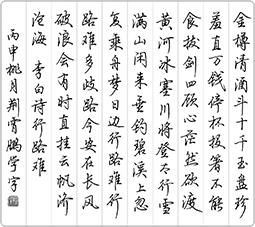 金樽清酒斗十千玉盘珍
羞直万钱停杯投箸不能
食拔剑四顾心茫然欲渡
黄河冰塞川将登太行雪
满山闲来垂钓碧溪上忽
复乘舟梦日边行路难行
路难多歧路今安在长风
破浪会有时直挂云帆济
沧海 李白诗行路难
丙申桃月荆霄鹏学字